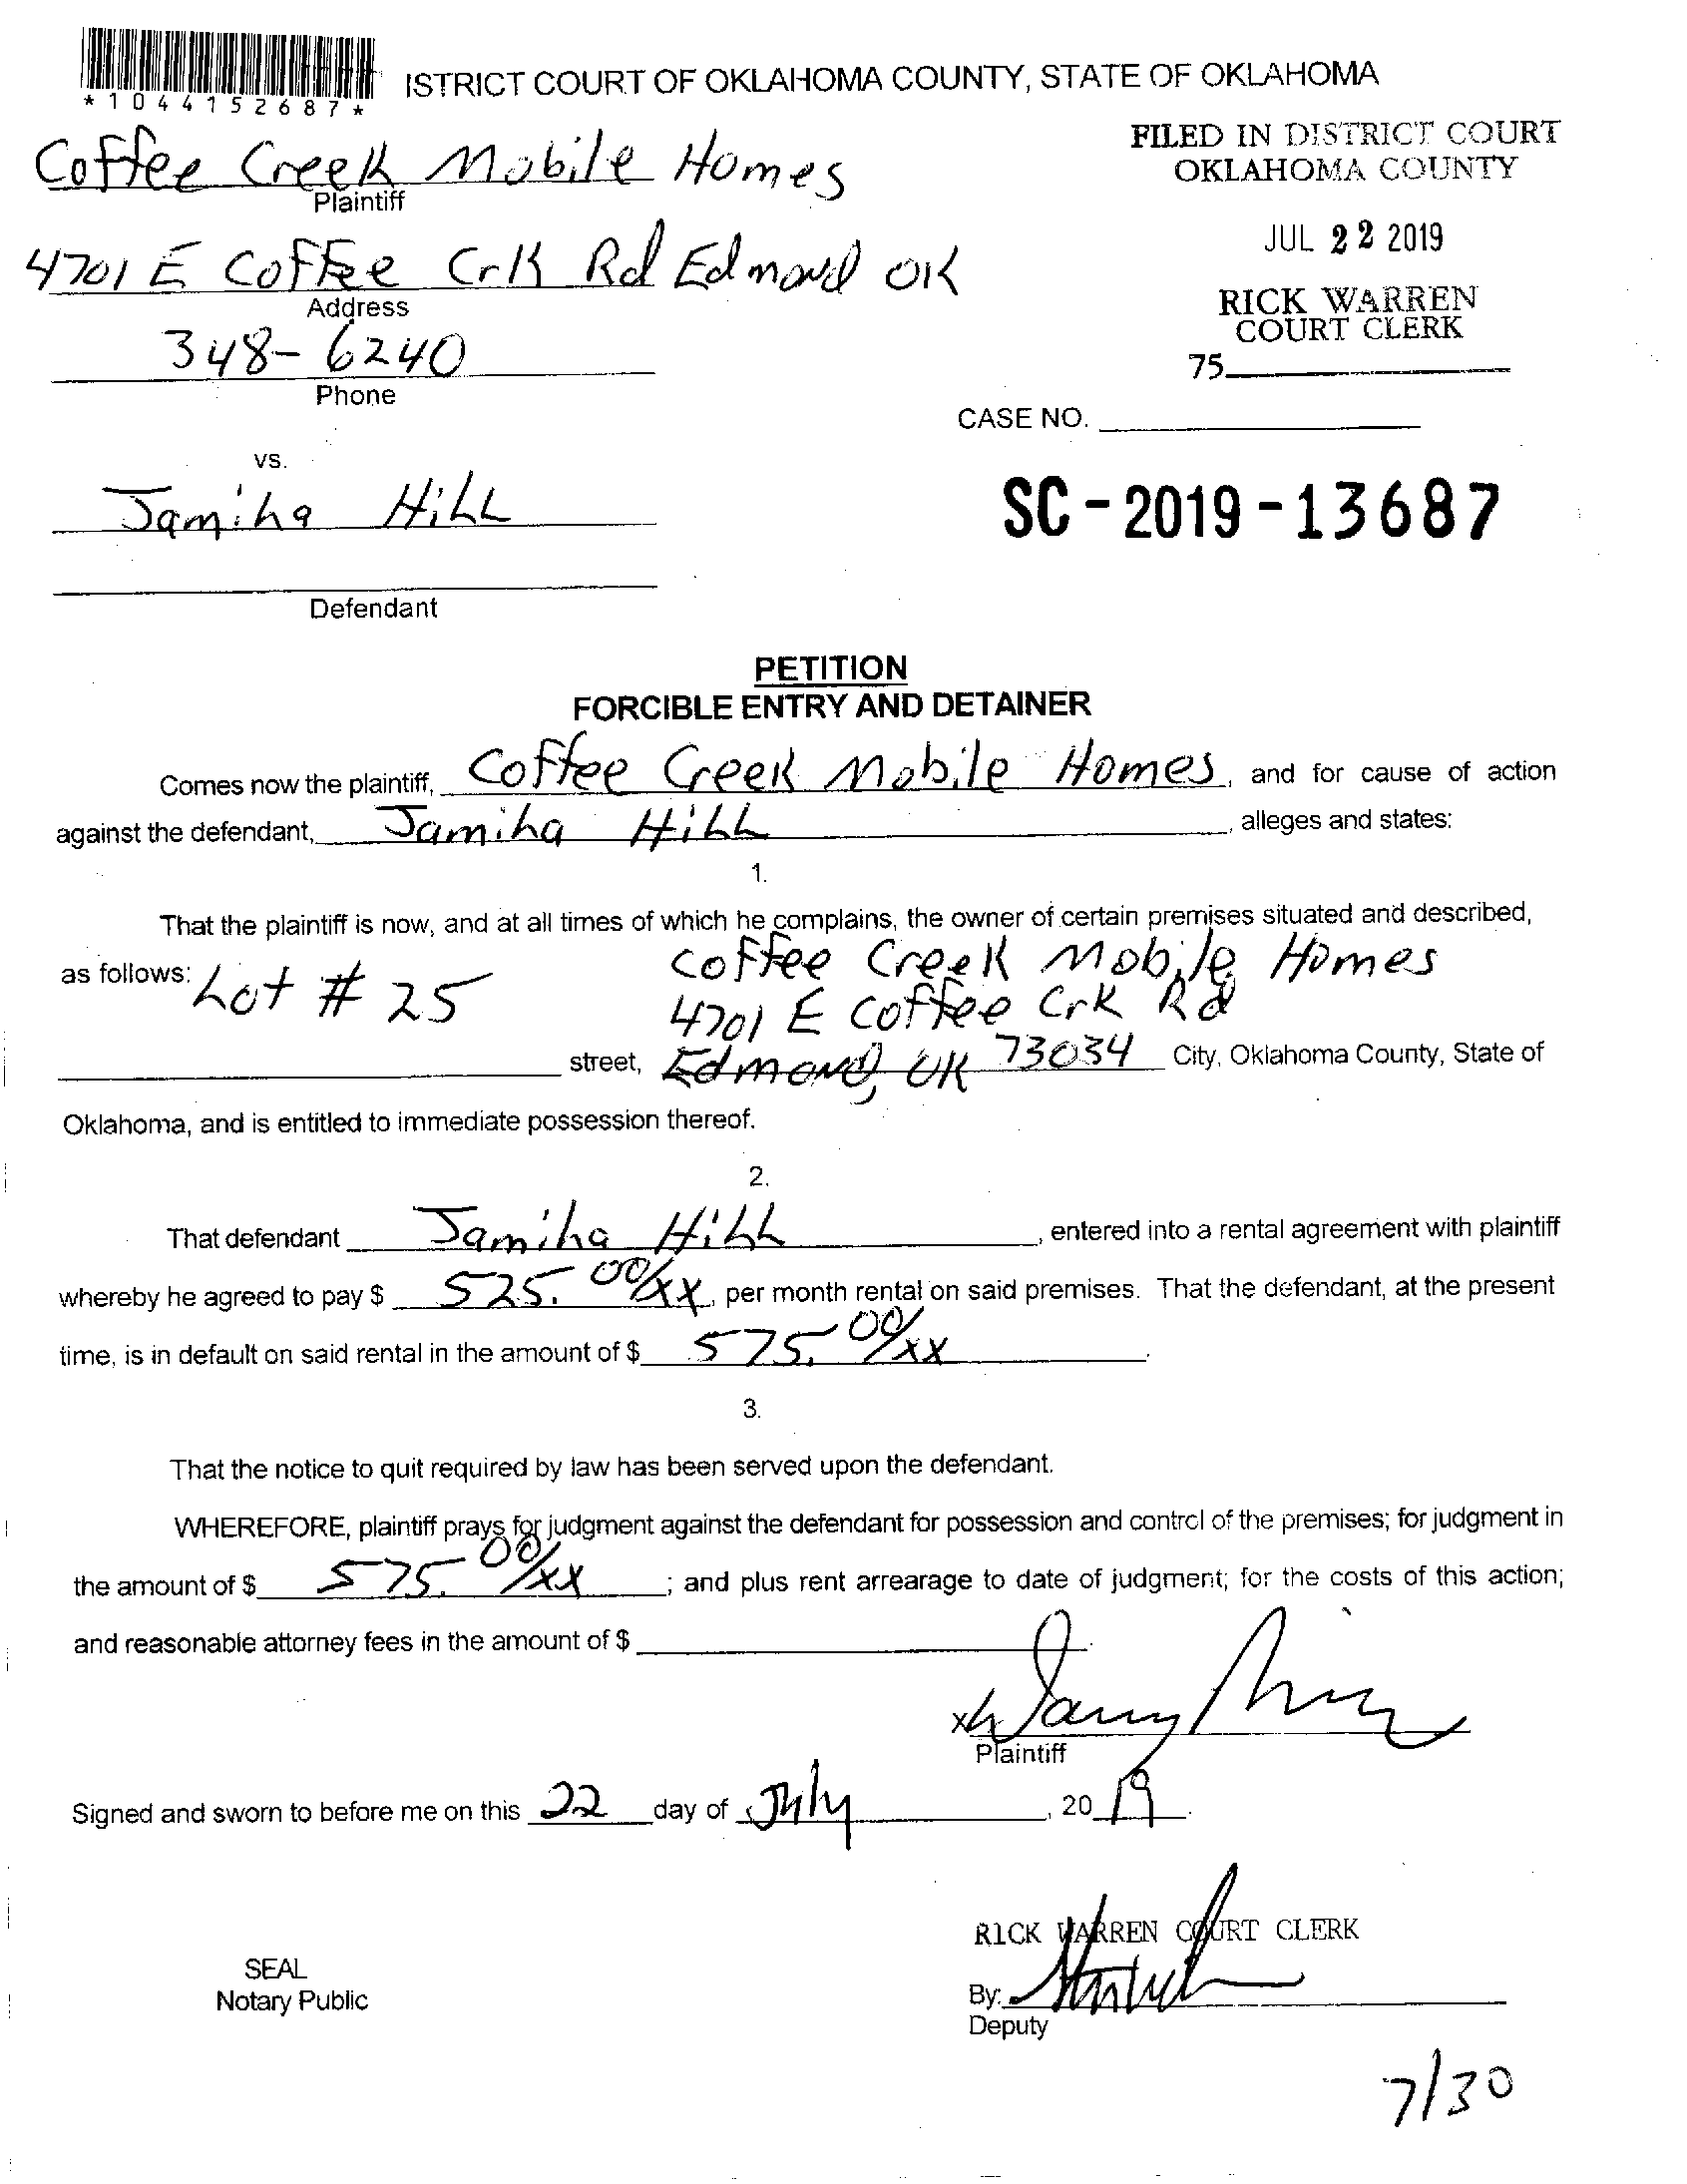 *1044152687*
ISTRICT COURT OF OKLAHOMA COUNTY, STATE OF OKLAHOMA
FILED IN DISTRICT COURT
OKLAHOMA COUNTY
Coffee Creek Mobile Homes
Plaintiff
JUL 22 2019
4701 E Coffee Crk Rd Edmond OK
Address
RICK WARREN
COURT CLERK
348-6240
Phone
75
CASE NO.
vs.
Jamiha Hill
SC-2019-13687
Defendant
PETITION
FORCIBLE ENTRY AND DETAINER
Comes now the plaintiff, Coffee Creek Mobile Homes, and for cause of action
against the defendant, Jamiha Hill, alleges and states:
1.
That the plaintiff is now, and at all times of which he complains, the owner of certain premises situated and described,
as follows: Lot # 25 Coffee Creek Mobile Homes
4701 E Coffee Crk Rd
street, Edmond, OK 73034 City, Oklahoma County, State of
Oklahoma, and is entitled to immediate possession thereof.
2.
That defendant Jamiha Hill, entered into a rental agreement with plaintiff
whereby he agreed to pay $ 525.00/xx, per month rental on said premises. That the defendant, at the present
time, is in default on said rental in the amount of $ 575.00/xx.
3.
That the notice to quit required by law has been served upon the defendant.
WHEREFORE, plaintiff prays for judgment against the defendant for possession and control of the premises; for judgment in
the amount of $ 575.00/xx; and plus rent arrearage to date of judgment; for the costs of this action;
and reasonable attorney fees in the amount of $
x
Plaintiff
Signed and sworn to before me on this 22 day of July, 2019.
RICK WARREN COURT CLERK
SEAL
Notary Public
By:
Deputy
7/30